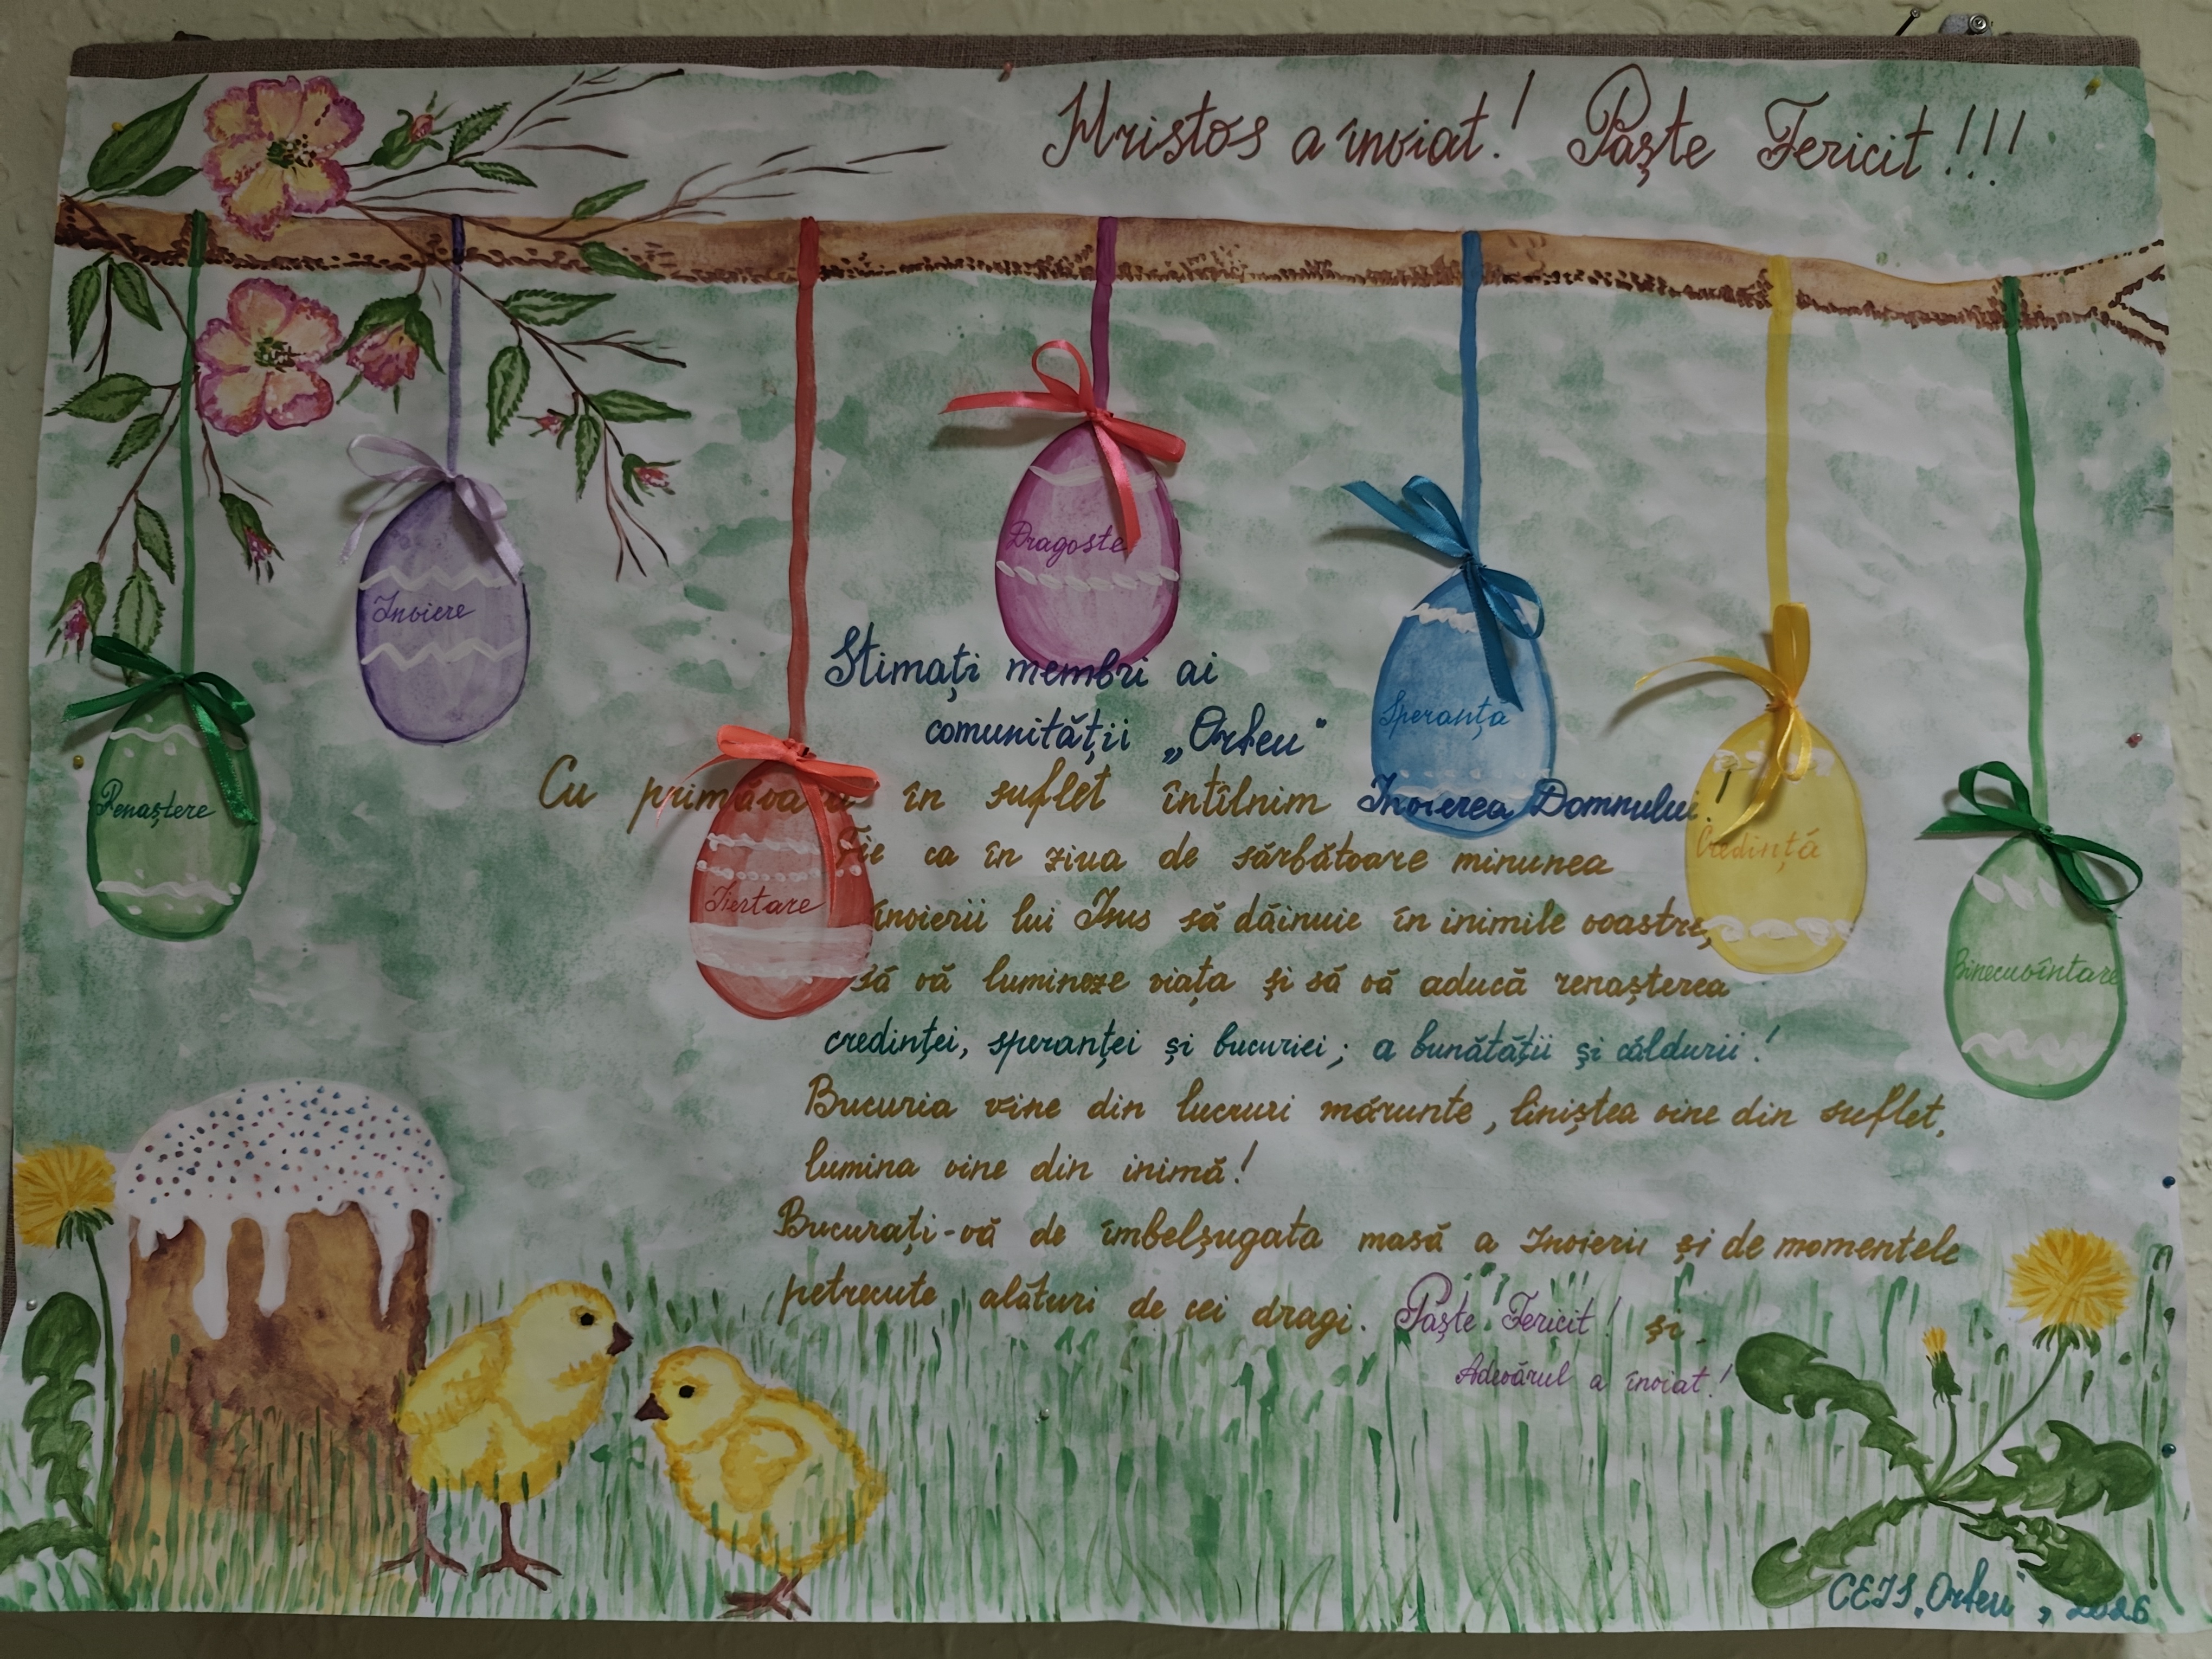 Hristos a înviat! Paște Fericit!!!
Dragoste
Înviere
Speranță
Renaștere
Iertare
Credință
Binecuvîntare
Stimați membri ai
comunității „Orfeu"
Cu primăvara în suflet întîlnim Învierea Domnului!
Fie ca în ziua de sărbătoare minunea
învierii lui Isus să dăinuie în inimile voastre,
să vă lumineze viața și să vă aducă renașterea
credinței, speranței și bucuriei; a bunătății și căldurii!
Bucuria vine din lucruri mărunte, liniștea vine din suflet,
lumina vine din inimă!
Bucurați-vă de îmbelșugata masă a Învierii și de momentele
petrecute alături de cei dragi. Paște Fericit! și
Adevărul a înviat!
CETS „Orfeu", 2026